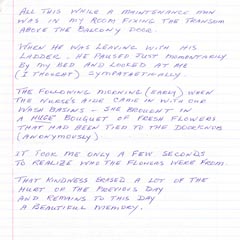 ALL THIS WHILE A MAINTENANCE MAN
WAS IN MY ROOM FIXING THE TRANSOM
ABOVE THE BALCONY DOOR.
WHEN HE WAS LEAVING WITH HIS
LADDER, HE PAUSED JUST MOMENTARILY
BY MY BED AND LOOKED AT ME
(I THOUGHT) SYMPATHETICALLY.
THE FOLLOWING MORNING (EARLY) WHEN
THE NURSE'S AIDE CAME IN WITH OUR
WASH BASINS - SHE BROUGHT IN
A HUGE BOUQUET OF FRESH FLOWERS
THAT HAD BEEN TIED TO THE DOORKNOB
(ANONYMOUSLY)
IT TOOK ME ONLY A FEW SECONDS
TO REALIZE WHO THE FLOWERS WERE FROM.
THAT KINDNESS ERASED A LOT OF THE
HURT OF THE PREVIOUS DAY
AND REMAINS TO THIS DAY
A BEAUTIFUL MEMORY.